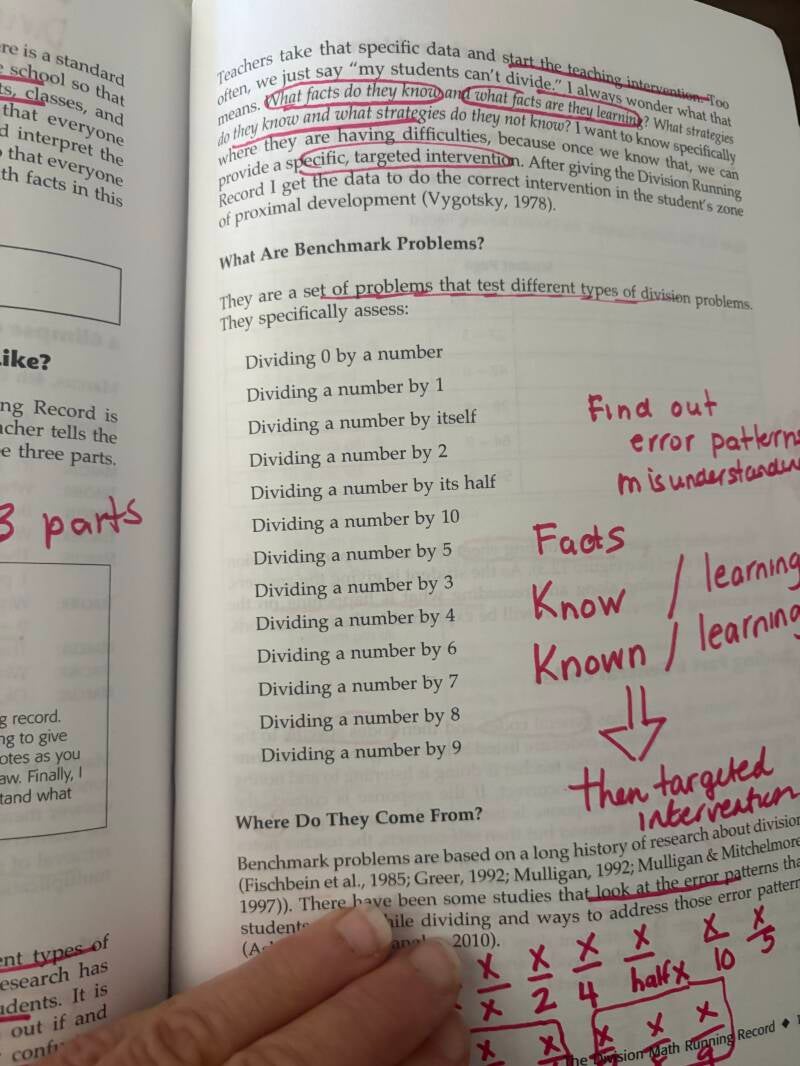 re is a standard
e school so that
ts, classes, and
that everyone
d interpret the
o that everyone
th facts in this
Like?
ng Record is
acher tells the
e three parts.
3 parts
g record.
ng to give
otes as you
aw. Finally, I
tand what
ent types of
esearch has
udents. It is
out if and
Teachers take that specific data and start the teaching intervention. Too
often, we just say "my students can't divide." I always wonder what that
means. What facts do they know and what facts are they learning? What strategies
do they know and what strategies do they not know? I want to know specifically
where they are having difficulties, because once we know that, we can
provide a specific, targeted intervention. After giving the Division Running
Record I get the data to do the correct intervention in the student's zone
of proximal development (Vygotsky, 1978).
What Are Benchmark Problems?
They are a set of problems that test different types of division problems.
They specifically assess:
Dividing 0 by a number
Dividing a number by 1
Dividing a number by itself
Dividing a number by 2
Dividing a number by its half
Dividing a number by 10
Dividing a number by 5
Dividing a number by 3
Dividing a number by 4
Dividing a number by 6
Dividing a number by 7
Dividing a number by 8
Dividing a number by 9
Find out
error patterns
misunderstandin
Facts
Know / learning
Known / learning
then targeted
intervention
Where Do They Come From?
Benchmark problems are based on a long history of research about division
(Fischbein et al., 1985; Greer, 1992; Mulligan, 1992; Mulligan & Mitchelmore
1997)). There have been some studies that look at the error patterns tha
students while dividing and ways to address those error pattern
2010).
x/x x/2 x/4 x/half x x/10 x/5
The Division Math Running Record ◆